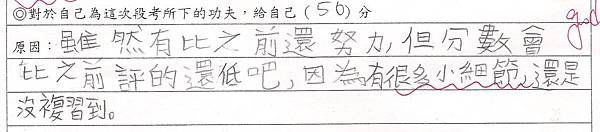 ◎對於自己為這次段考所下的功夫，給自己（50）分
good
原因：雖然有比之前還努力,但分數會
比之前評的還低吧,因為有很多小細節,還是
沒複習到。